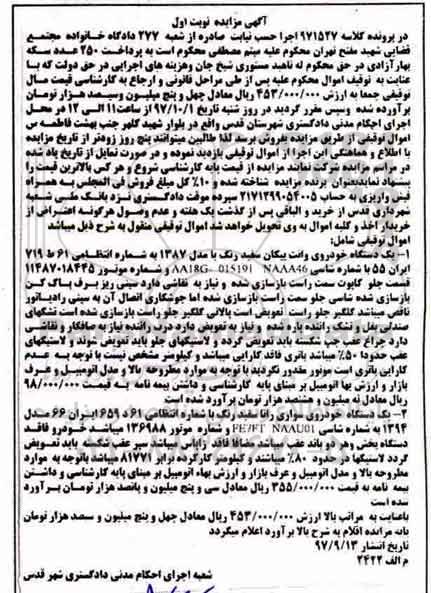 آگهی مزایده نوبت اول
در پرونده کلاسه ۹۷۱۵۲۷ اجرا حسب نیابت صادره از شعبه ۲۷۷ دادگاه خانواده مجتمع
قضایی شهید مفتح تهران محکوم علیه میثم مصطفی محکوم است به پرداخت ۲۵۰ عدد سکه
بهار آزادی در حق محکوم له ناهید مستوری شیخ جان وهزینه های اجرایی در حق دولت که با
عنایت به توقیف اموال محکوم علیه پس از طی مراحل قانونی و ارجاع به کارشناسی قیمت مال
توقیفی جمعا به ارزش ۴۵۳/۰۰۰/۰۰۰ ریال معادل چهل و پنج میلیون وسیصد هزار تومان
برآورده شده وسپس مقرر گردید در روز شنبه تاریخ ۹۷/۱۰/۱ از ساعت ۱۱ الی ۱۲ در محل
اجرای احکام مدنی دادگستری شهرستان قدس واقع در بلوار شهید کلهر جنب بهشت فاطمه س
اموال توقیفی از طریق مزایده بفروش برسد لذا طالبین میتوانند پنج روز زودتر از تاریخ مزایده
با اطلاع و هماهنگی این اجرا از اموال توقیفی بازدید نموده و در صورت تمایل از تاریخ یاد شده
در مزایده شرکت نمایند مزایده از قیمت پایه کارشناسی شروع و هر کس بالاترین قیمت را
پیشنهاد نماید بعنوان برنده مزایده شناخته شده و ۱۰٪ کل مبلغ فروش فی المجلس به همراه
فیش واریزی به حساب ۲۱۷۱۲۹۹۰۵۴۰۰۵ سپرده موقت دادگستری نزد بانک ملی شعبه
شهرداری قدس از خرید و الباقی پس از گذشت یک هفته و عدم وصول هرگونه اعتراضی از
خریدار اخذ و کلیه اموال به وی تحویل خواهد شد اموال توقیفی منقول به شرح ذیل میباشد
اموال توقیفی شامل:
۱- یک دستگاه خودروی وانت پیکان سفید رنگ با مدل ۱۳۸۷ به شماره انتظامی ۶۱ ط ۷۱۹
ایران ۵۵ با شماره شاسی NAAA46 AA18G 015191 و شماره موتور ۱۱۴۸۷۰۱۸۴۴۵
قسمت جلو کاپوت سمت راست بازسازی شده و نیاز به نقاشی دارد سینی زیر برف پاک کن
بازسازی شده شاسی جلو سمت راست بازسازی شده اما جوشکاری اتصال آن به سینی رادیاتور
ناقص میباشد گلگیر جلو راست تعویض است پالانی گلگیر جلو راست بازسازی شده است تشکهای
صندلی بغل و تشک راننده پاره شده و نیاز به تعویض دارد درب راننده نیاز به صافکار و نقاشی
دارد چراغ عقب چپ شکسته باید تعویض گردد و لاستیکهای جلو باید تعویض شوند و لاستیکهای
عقب حدودا ۵۰٪ میباشد باتری فاقد کارایی میباشد و کیلومتر مشخص نیست با توجه به عدم
کارایی باتری است موتور مقدور نگردید با توجه به موارد مطروحه بالا و مدل اتومبیل و عرف
بازار و ارزش بها اتومبیل بر مبنای پایه کارشناسی و داشتن بیمه نامه به قیمت ۹۸/۰۰۰/۰۰۰
ریال معادل نه میلیون و هشتصد هزار تومان برآورد شده است
۲- یک دستگاه خودروی سواری رانا سفید رنگ با شماره انتظامی ۶۱ د ۶۵۹ ایران ۶۶ مدل
۱۳۹۴ به شماره شاسی NAAU01 FE/FT و شماره موتور ۱۳۶۹۸۸ میباشد خودرو فاقد
دستگاه پخش ودو باند عقب میباشد مضافا فاقد زاپاس میباشد سپر عقب شکسته باید تعویض
گردد لاستیکها در حدود ۸۰٪ میباشند و کیلومتر کارکرده برابر ۸۱۷۷۱ میباشد باتوجه به موارد
مطروحه بالا و مدل اتومبیل و عرف بازار و ارزش بهاء اتومبیل بر مبنای پایه کارشناسی و داشتن
بیمه نامه به قیمت ۳۵۵/۰۰۰/۰۰۰ ریال معادل سی و پنج میلیون و پانصد هزار تومان برآورد
شده است
باعنایت به مراتب بالا ارزش ۴۵۳/۰۰۰/۰۰۰ ریال معادل چهل و پنج میلیون و سیصد هزار تومان
بابت مزایده اقلام به شرح بالا برآورد اعلام میگردد
تاریخ انتشار ۹۷/۹/۱۳
م الف ۲۴۲۲
شعبه اجرای احکام مدنی دادگستری شهر قدس